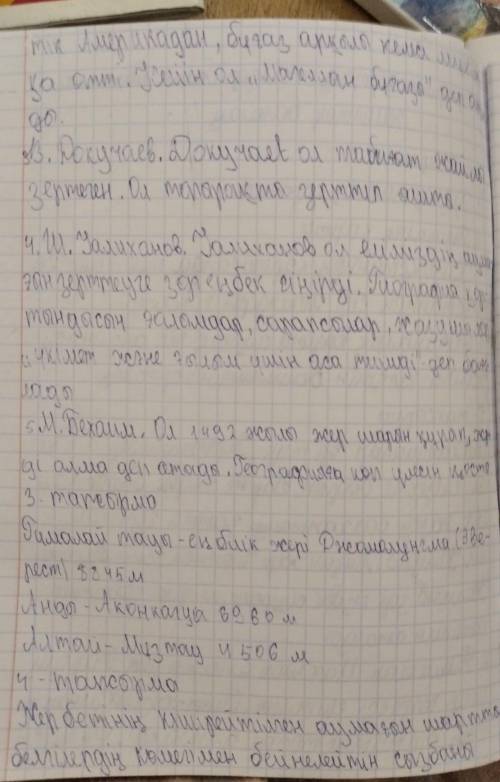 тік Америкадан, бұғаз арқылы кема
қа өтті. Кейін ол „Магеллан бұғазы" деп
ды.
3. В. Докучаев. Докучаев ол табиғат жайлы
зерттеген. Ол топарақты зерттип ашты.
4. Ш. Уалиханов. Уалиханов ол еліміздің
зерттеуге зор еңбек сіңірді. География
тындысын ғаломдар, саяпсылар, жазушыла
үкімет және ғылым үшін аса тиімді деп баға
лады
5. М. Бехаим. Ол 1492 жылы жер шарын құрап, жер
ді алма деп атады. Географияға көп үлесін қосты
3-тапсырма
Гималай тауы-ең биік жері Джомолунгма (Эве-
рест) 8845м
Анды-Аконкагуа 6960 м
Алтай-Мұзтау 4 506 м
4-тапсырма
Жер бетінің кішірейтілген аумағын шартты
белгілердің көмегімен бейнелейтін сызбаны